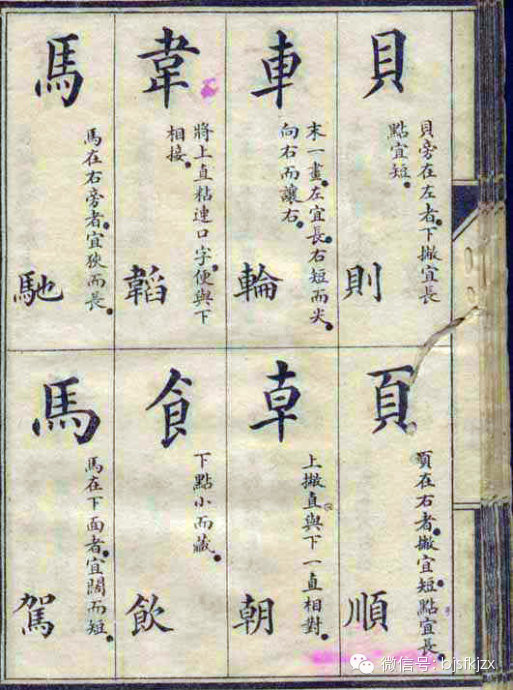 貝
貝旁在左者。下撇宜長
點宜短。
則
車
末一畫。左宜長。右短而尖。
向右而讓右。
輪
韋
將上直粘連口字。便與下
相接。
韜
馬
馬在右旁者。宜狹而長。
馳
頁
頁在右者。撇宜短。點宜長。
順
𠦝
上撇直與下一直相對。
朝
食
下點小而藏。
飲
馬
馬在下面者。宜闊而短。
駕
微信号: bjsfkjzx